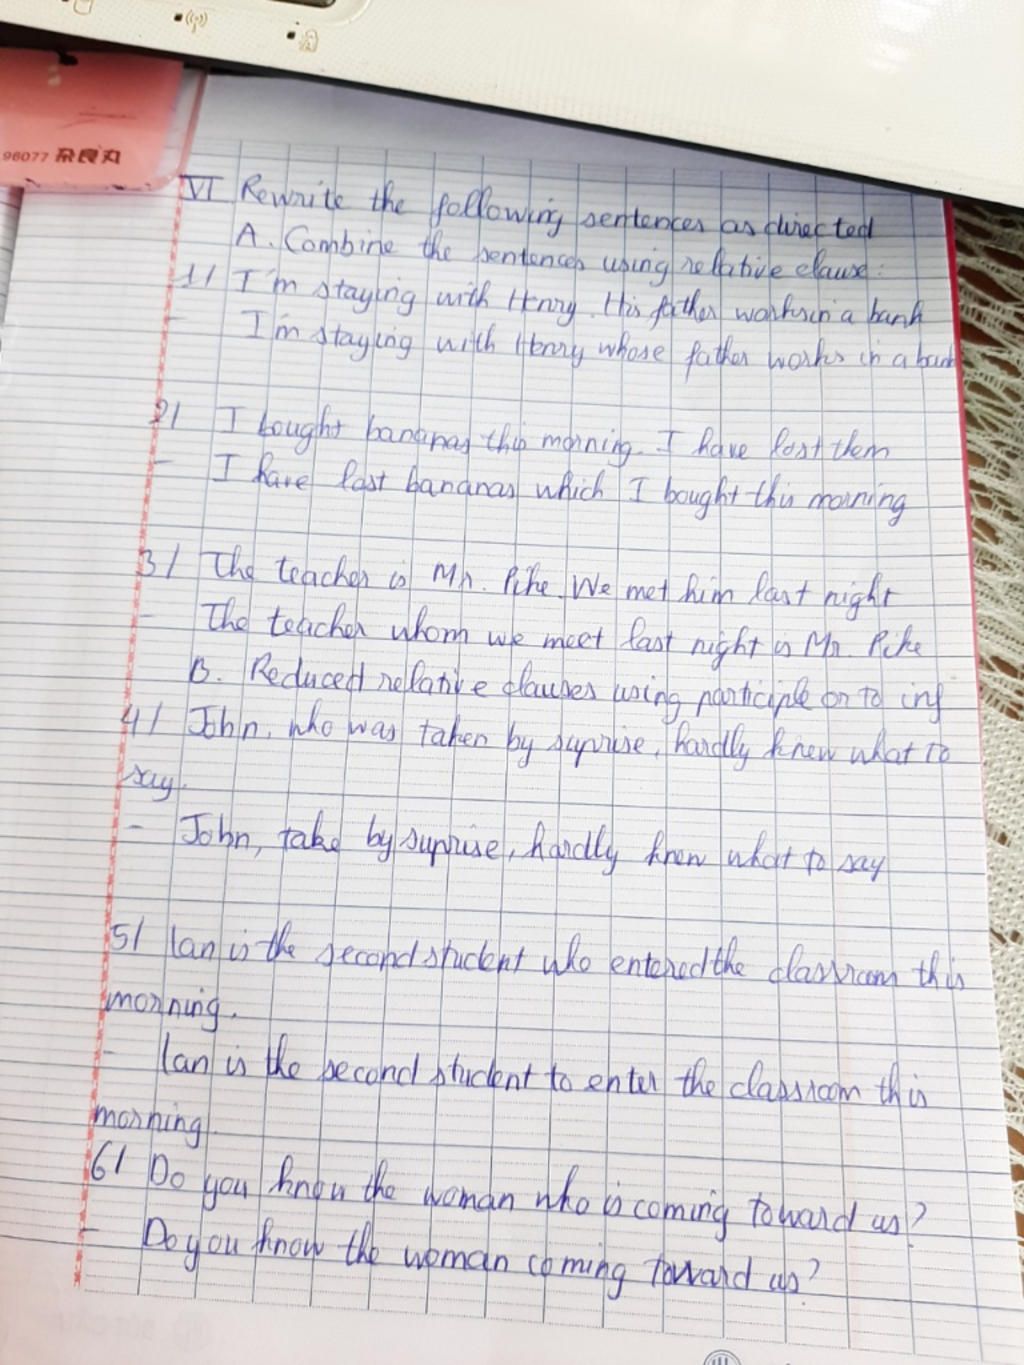 96077 杂良丸
VI Rewrite the following sentences as directed
A. Combine the sentences using relative clause:
1/ I'm staying with Henry. His father works in a bank
- I'm staying with Henry whose father works in a bank
2/ I bought bananas this morning. I have lost them
- I have lost bananas which I bought this morning
3/ The teacher is Mr. Pike. We met him last night
- The teacher whom we meet last night is Mr. Pike
B. Reduced relative clauses using participle or to inf
4/ John, who was taken by suprise, hardly knew what to
say.
- John, take by suprise, hardly knew what to say
5/ Ian is the second student who entered the classroom this
morning.
- Ian is the second student to enter the classroom this
morning
6/ Do you know the woman who is coming toward us?
- Do you know the woman coming toward us?